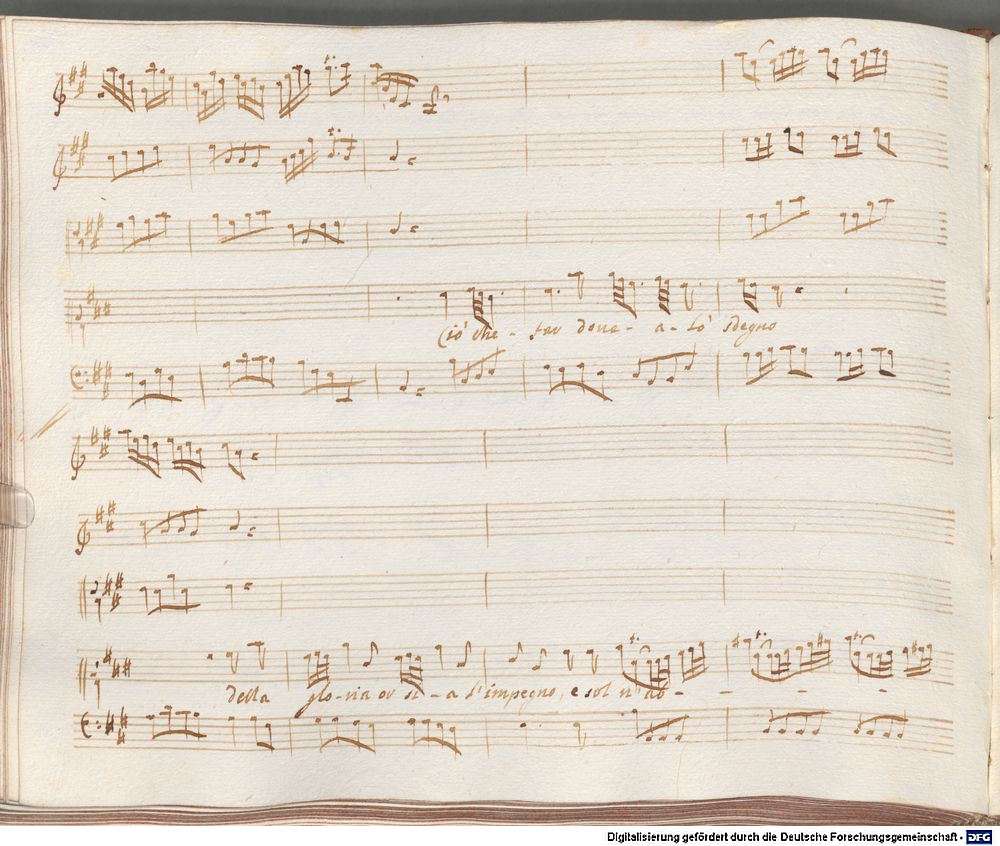 Ciò che - far dove - a - lo' sdegno
della glo - ria or si - a l'impegno, e sol n'ab - - - - -
Digitalisierung gefördert durch die Deutsche Forschungsgemeinschaft - DFG